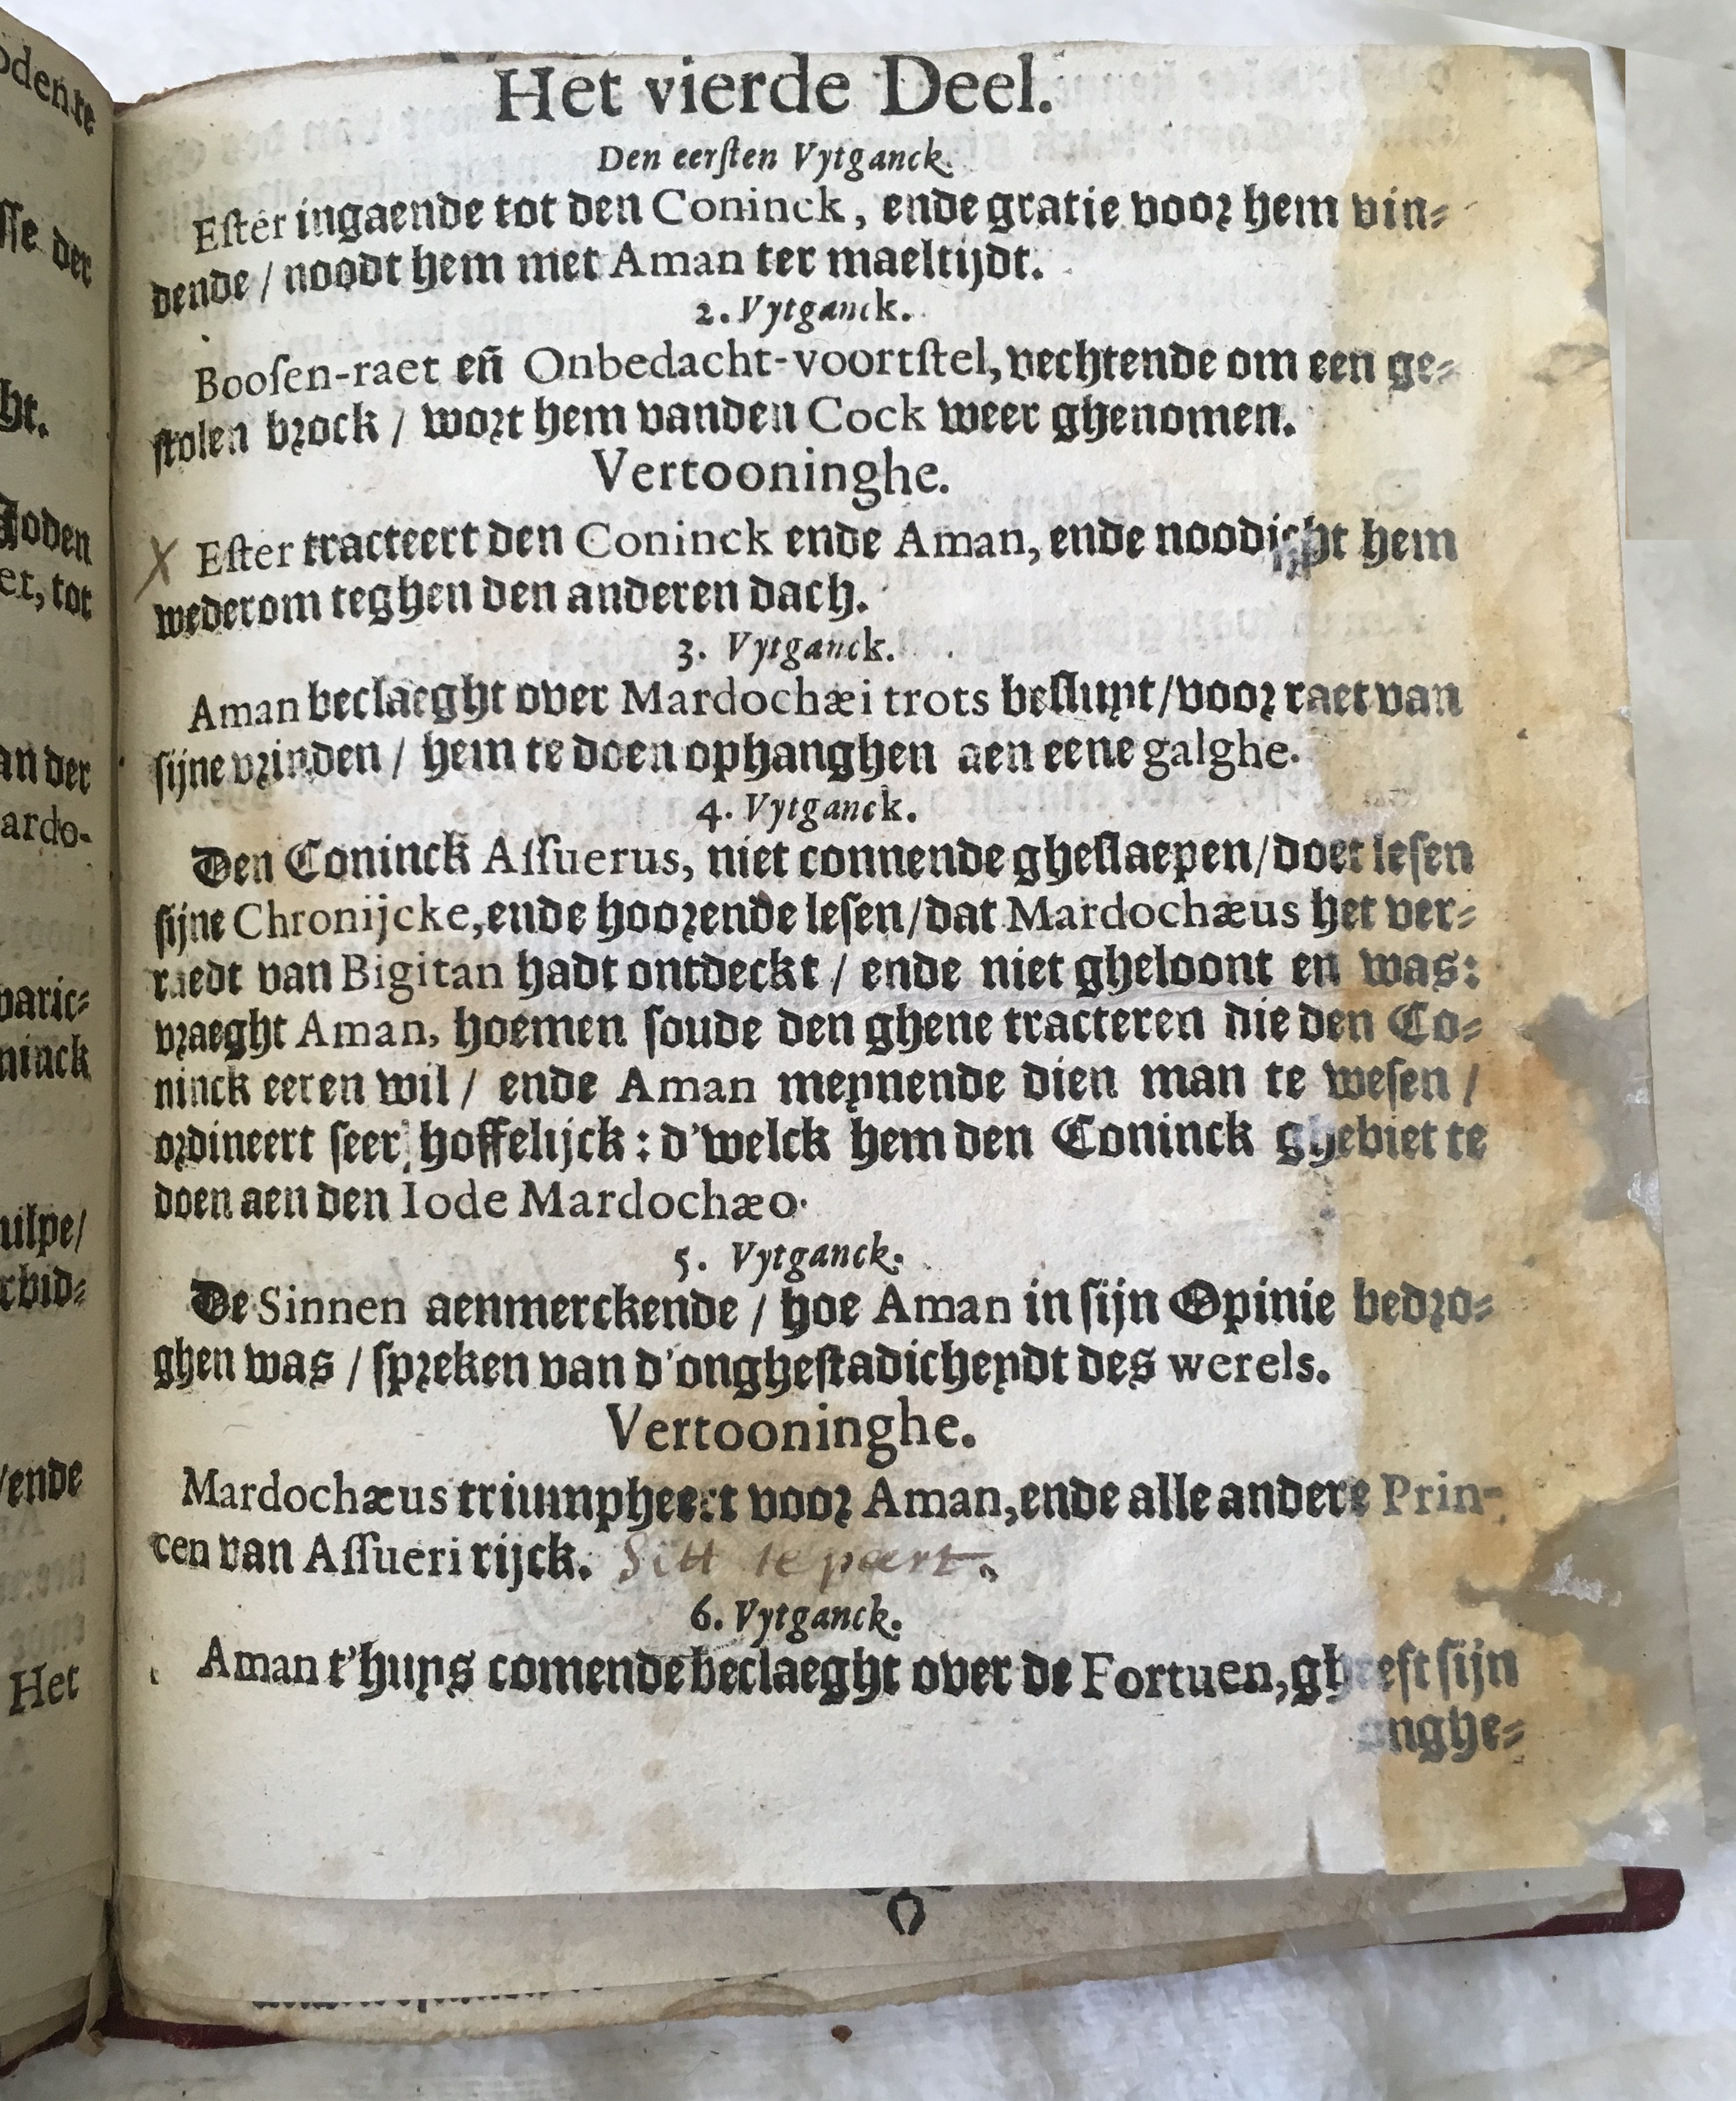 Het vierde Deel.
Den eerſten Vytganck.
Eſter ingaende tot den Coninck, ende gratie voor hem vin-
dende / noodt hem met Aman ter maeltijdt.
2. Vytganck.
Booſen-raet eñ Onbedacht-voortſtel, vechtende om een ge-
ſtolen brock / wort hem vanden Cock weer ghenomen.
Vertooninghe.
X Eſter tracteert den Coninck ende Aman, ende noodicht hem
wederom teghen den anderen dach.
3. Vytganck.
Aman beclaeght over Mardochæi trots beſluyt / voor raet van
ſijne vrinden / hem te doen ophanghen aen eene galghe.
4. Vytganck.
Den Coninck Aſſuerus, niet connende gheſlaepen / doet leſen
ſijne Chronijcke, ende hoorende leſen / dat Mardochæus het ver-
raedt van Bigitan hadt ontdeckt / ende niet gheloont en was:
vraeght Aman, hoemen ſoude den ghene tracteren die den Co-
ninck eeren wil / ende Aman meynende dien man te weſen /
ordineert ſeer hoffelijck: d'welck hem den Coninck ghebiet te
doen aen den Iode Mardochæo.
5. Vytganck.
De Sinnen aenmerckende / hoe Aman in ſijn Opinie bedro-
ghen was / ſpreken van d'ongheſtadicheydt des werels.
Vertooninghe.
Mardochæus triumpheert voor Aman, ende alle andere Prin-
cen van Aſſueri rijck. Sitt te peert.
6. Vytganck.
Aman t'huys comende beclaeght over de Fortuen, gheeft ſijn
onghe-
oden te
ſſe der
ht.
Joden
er, tot
an der
ardo-
varic-
ninck
ulpe/
rbid-
/ende
Het